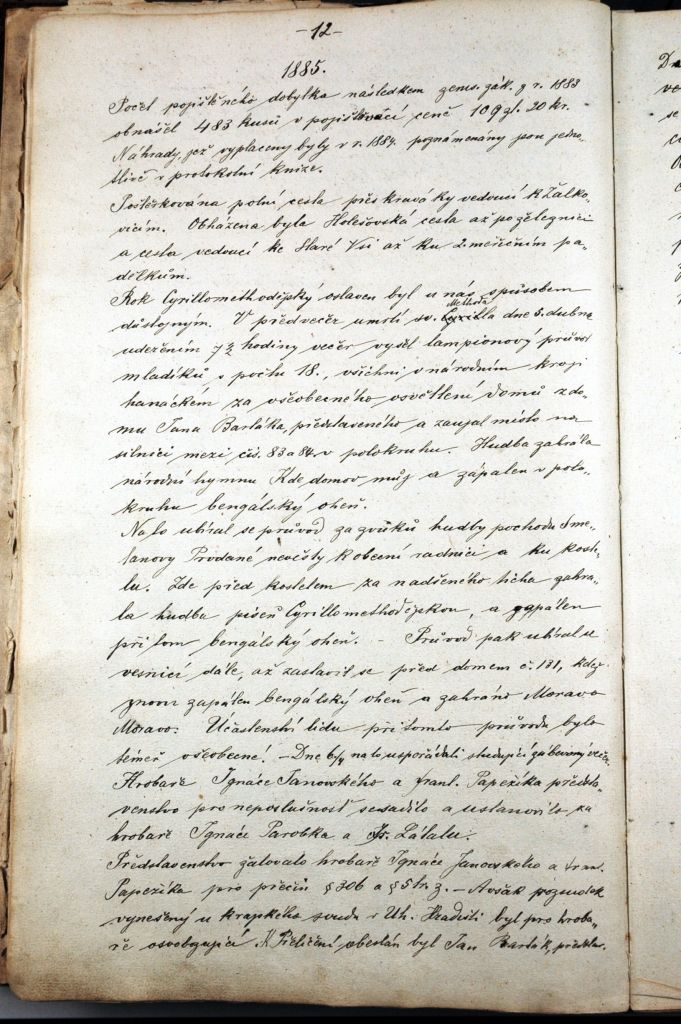 -12-
1885.
Počet pojištěného dobytka následkem zems. zák. z r. 1883
obnášel 483 kusů v pojišťovací ceně 109 zl. 20 kr.
Náhrady, jež vyplaceny byly v r. 1884. poznamenány jsou jedno-
tlivě v protokolní knize.
Poštěrkována polní cesta přes kraváky vedoucí k Žalko-
vicím. Obházena byla Holešovská cesta až po železnici
a cesta vedoucí ke Staré Vsi až ku 2. měřičním pa-
dělkům.
Rok Cyrillomethodějský oslaven byl u nás spůsobem
důstojným. V předvečer umrtí sv. Methoda dne 5. dubna
udeřením 7½ hodiny večer vyšel lampionový průvod
mladíků v počtu 18., všichni v národním kroji
hanáckém za všeobecného osvětlení domů z do-
mu Jana Bartáka, představeného a zaujal místo na
silnici mezi čís. 83 a 84. v polokruhu. Hudba zahrála
národní hymnu Kde domov můj a zápalen v polo-
kruhu bengálský oheň.
Na to ubíral se průvod za zvuků hudby pochodu Sme-
tanovy Prodané nevěsty k obecní radnici a ku koste-
lu. Zde před kostelem za nadšeného ticha zahrá-
la hudba píseň Cyrillomethodějskou, a zapálen
při tom bengálský oheň. - Průvod pak ubíral se
vesnicí dále, až zastavil se před domem č. 131, kdež
znovu zapálen bengálský oheň a zahráno Moravo
Moravo. Účastenství lidu při tomto průvodu bylo
téměř všeobecné! - Dne na to uspořádali studující zábavný večer.
Hrobaře Ignáce Janovského a Frant. Papežíka předsta-
venstvo pro neposlušnosť sesadilo a ustanovilo za
hrobaře Ignáce Parobka a Zátalu.
Představenstvo žalovalo hrobaře Ignáce Janovského a Fran.
Papežíka pro přečin § 306 a § 5 tr. z. - Avšak rozsudek
vynešený u krajského soudu v Uh. Hradišti byl pro hroba-
ře osvobozující. K obeslán byl Jan Barták, předsta-